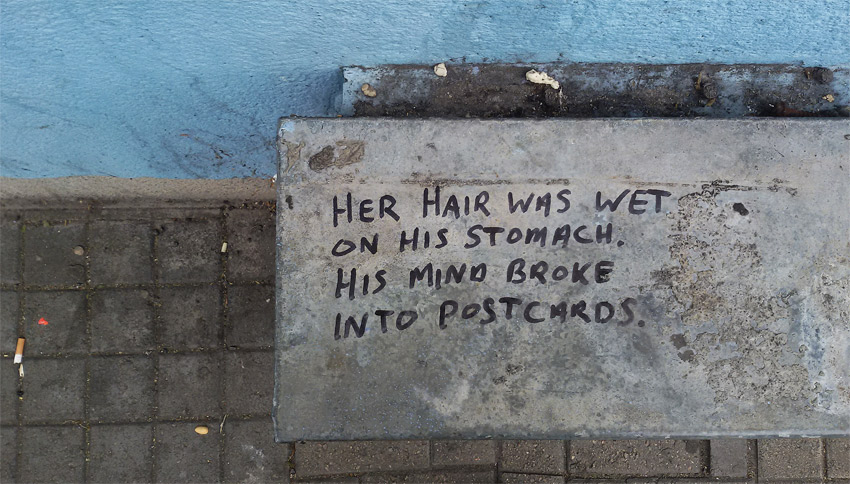 HER HAIR WAS WET
ON HIS STOMACH.
HIS MIND BROKE
INTO POSTCARDS.